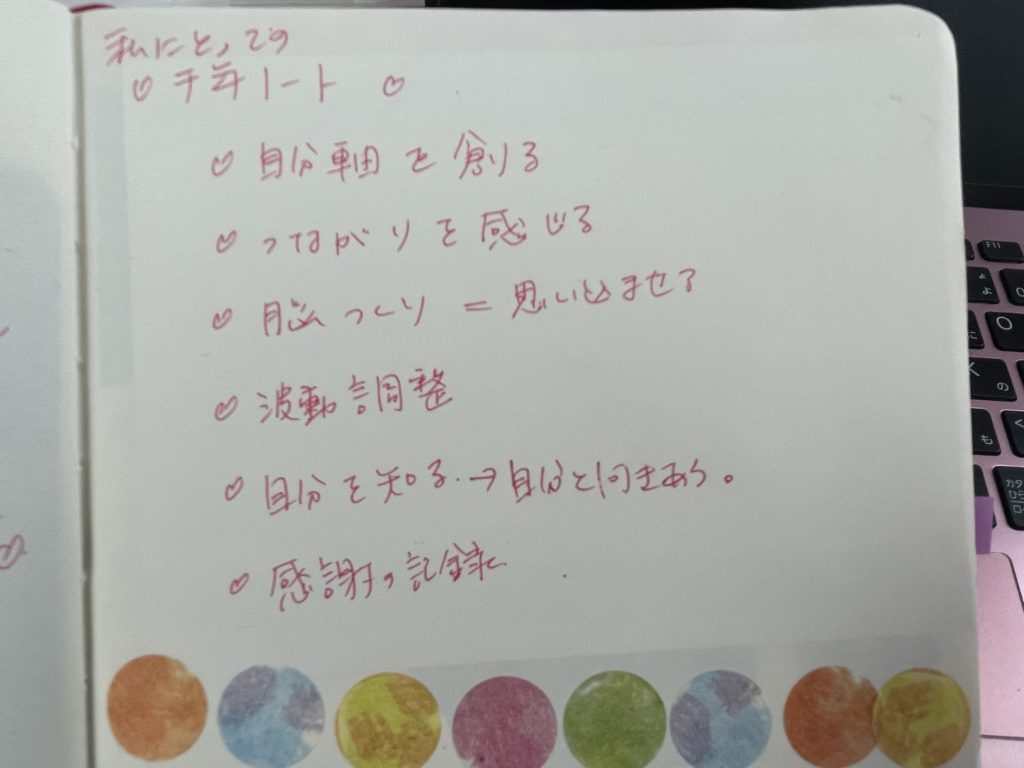 私にとっての
♡ 手寺ノート ♡
♡ 自分軸を創る
♡ つながりを感じる
♡ 脳づくり = 思い込ませる
♡ 波動調整
♡ 自分を知る. → 自分と向きあう。
♡ 感謝の記録
F11